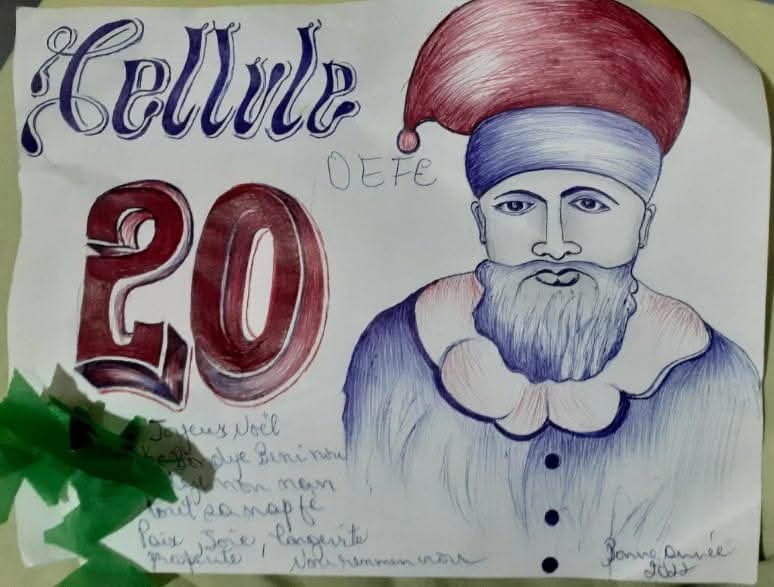 Cellule
OEFE
20
Joyeux Noël
dye Beni nou
nan
tout sa nap fè
Paix, Joie, longevite
prosperite, Nou renmen nou
Bonne année
2022